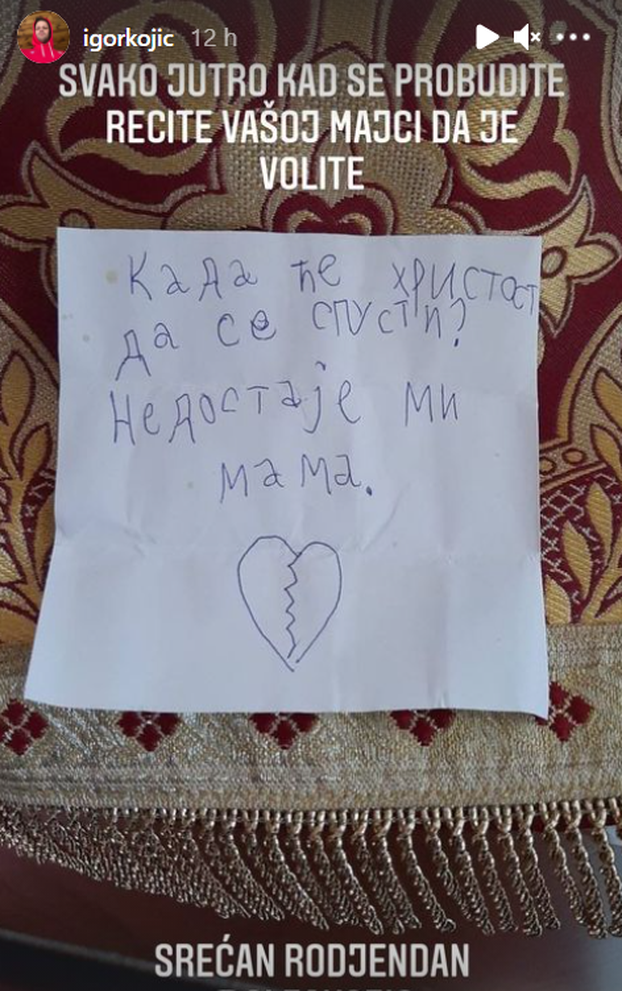 igorkojic 12 h
SVAKO JUTRO KAD SE PROBUDITE
RECITE VAŠOJ MAJCI DA JE
VOLITE
Када ће христост
да се спусти?
Недостаје ми
мама.
SREĆAN RODJENDAN